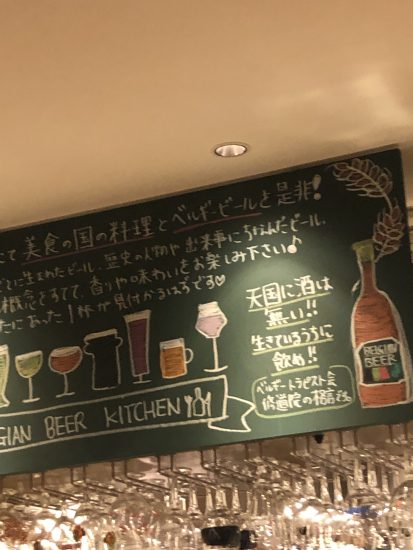 にて美食の国の料理とベルギービールを是非!
とに生まれたビール、歴史の人物や出来事にちなんだビール。
概念をすてて、香りや味わいをお楽しみ下さい♪
たにあった1杯が見付かるはずです♡
天国に酒は
無い!!
生きているうちに
飲め!!
ベルギートラピスト会
修道院の格言さん
BELGIAN
BEER
GIAN BEER KITCHEN